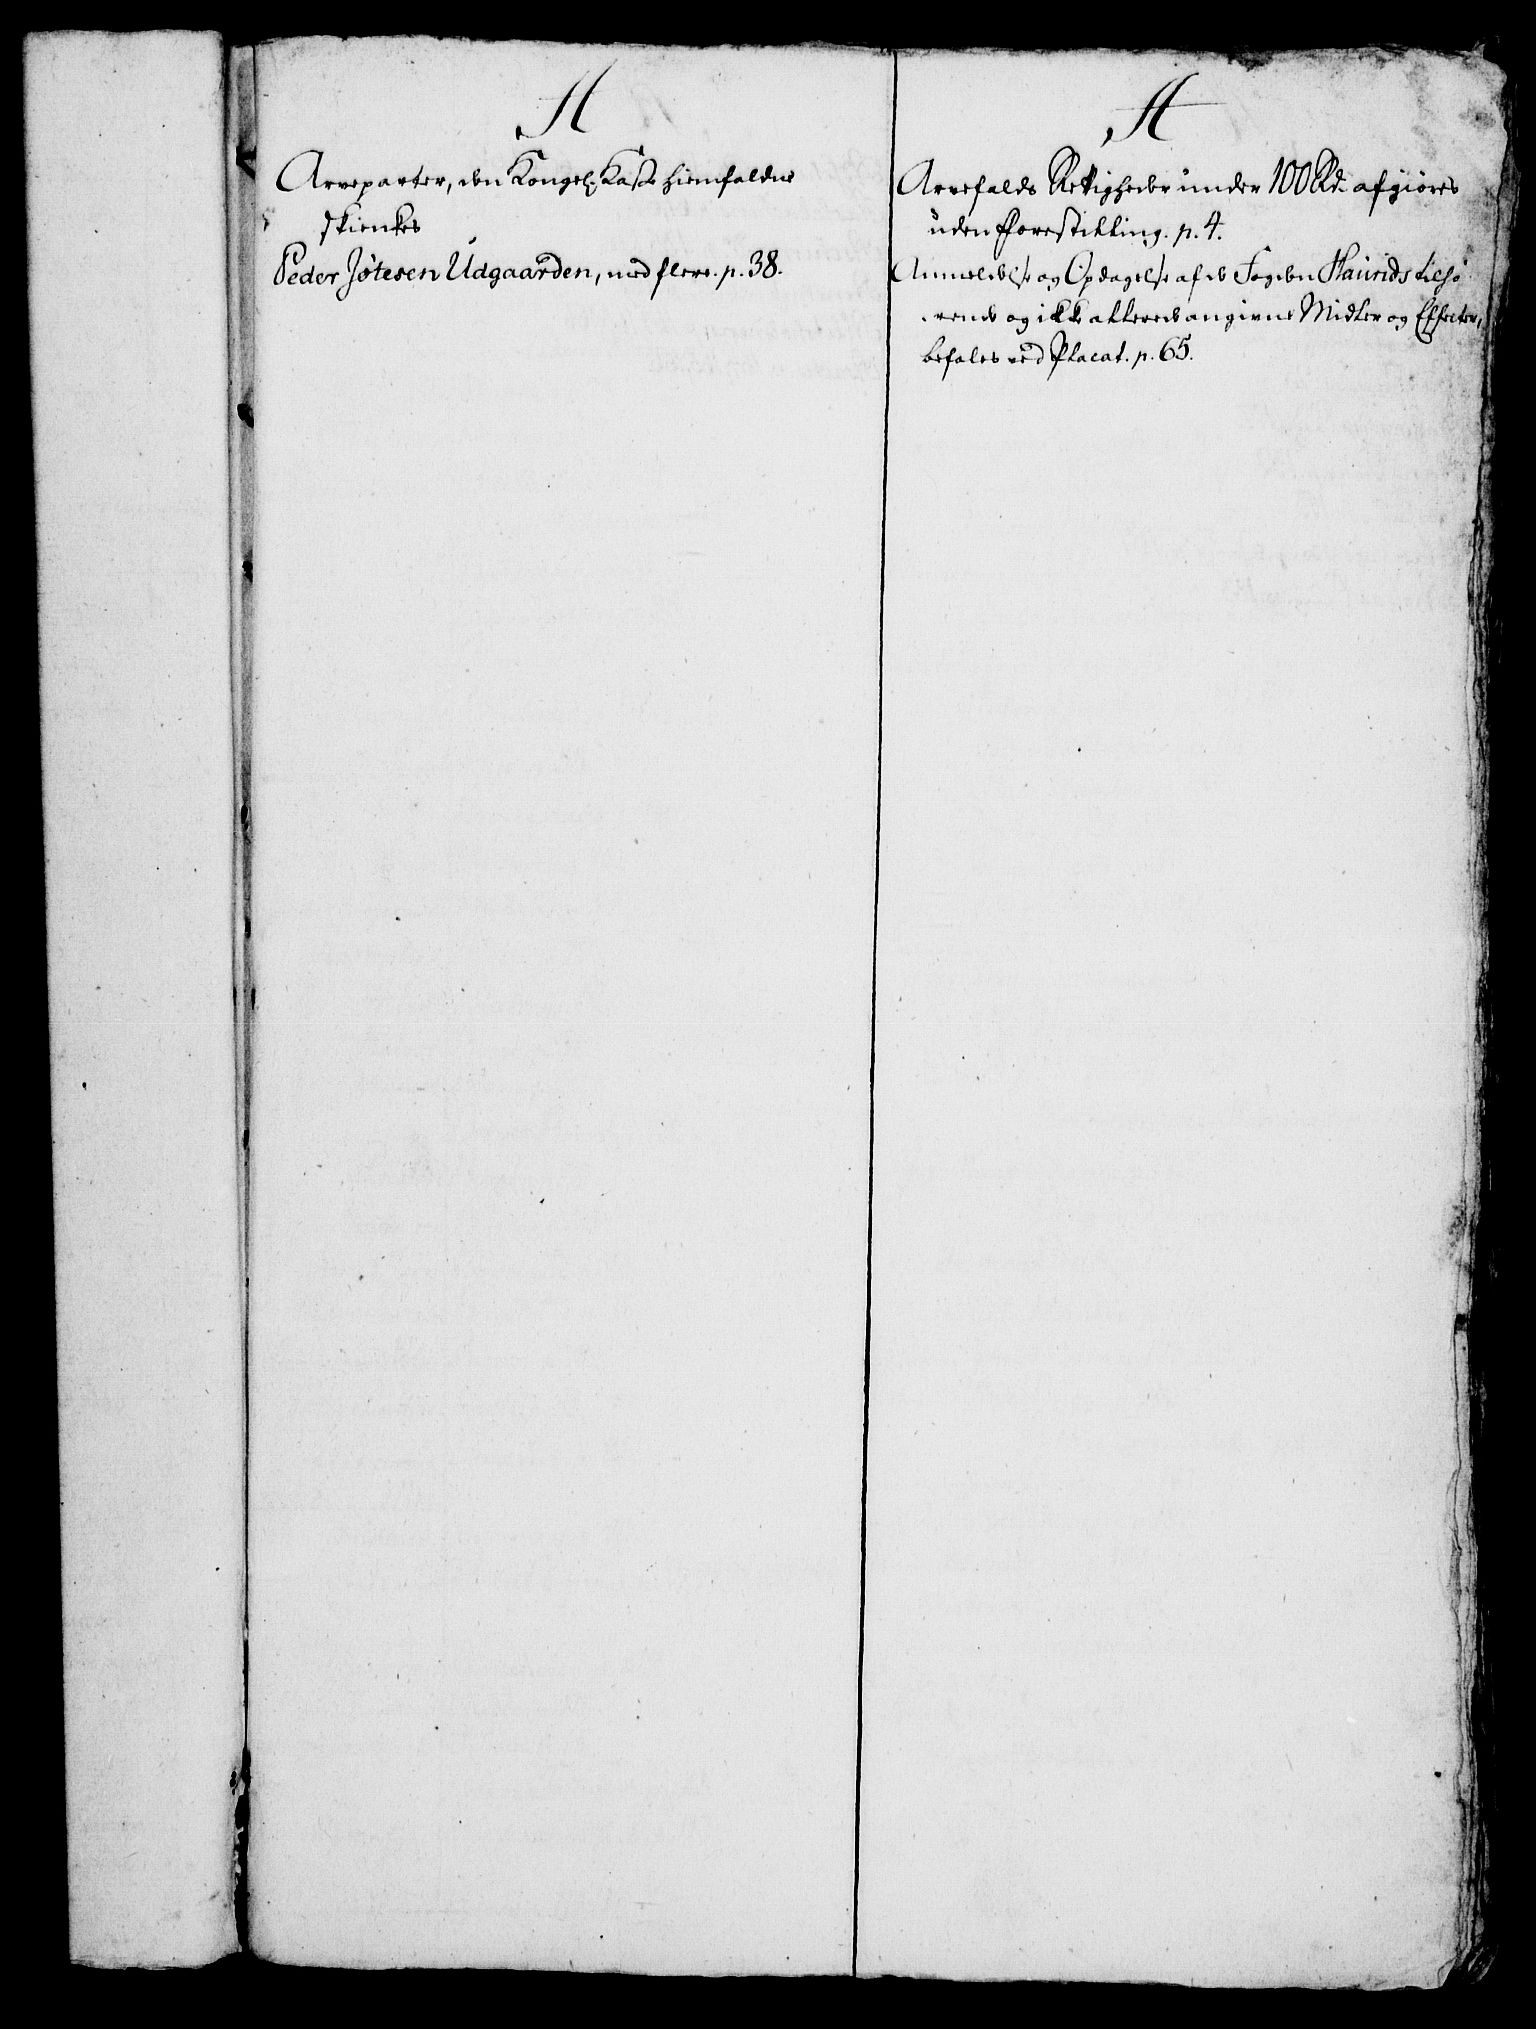 A
Arveparter, den Kongel. Kasse hiemfaldne
skienkes
Peder Jøtesen Udgaarden, med flere. p. 38.
A
Arvefalds Rettigheder under 100 Rd. afgiøres
uden Forestilling. p. 4.
Anmeldelse og Opdagelse af de Fogden Haurids tilhø-
rende og ikke allerede angivne Midler og Effecter,
befales ved Placat. p. 65.